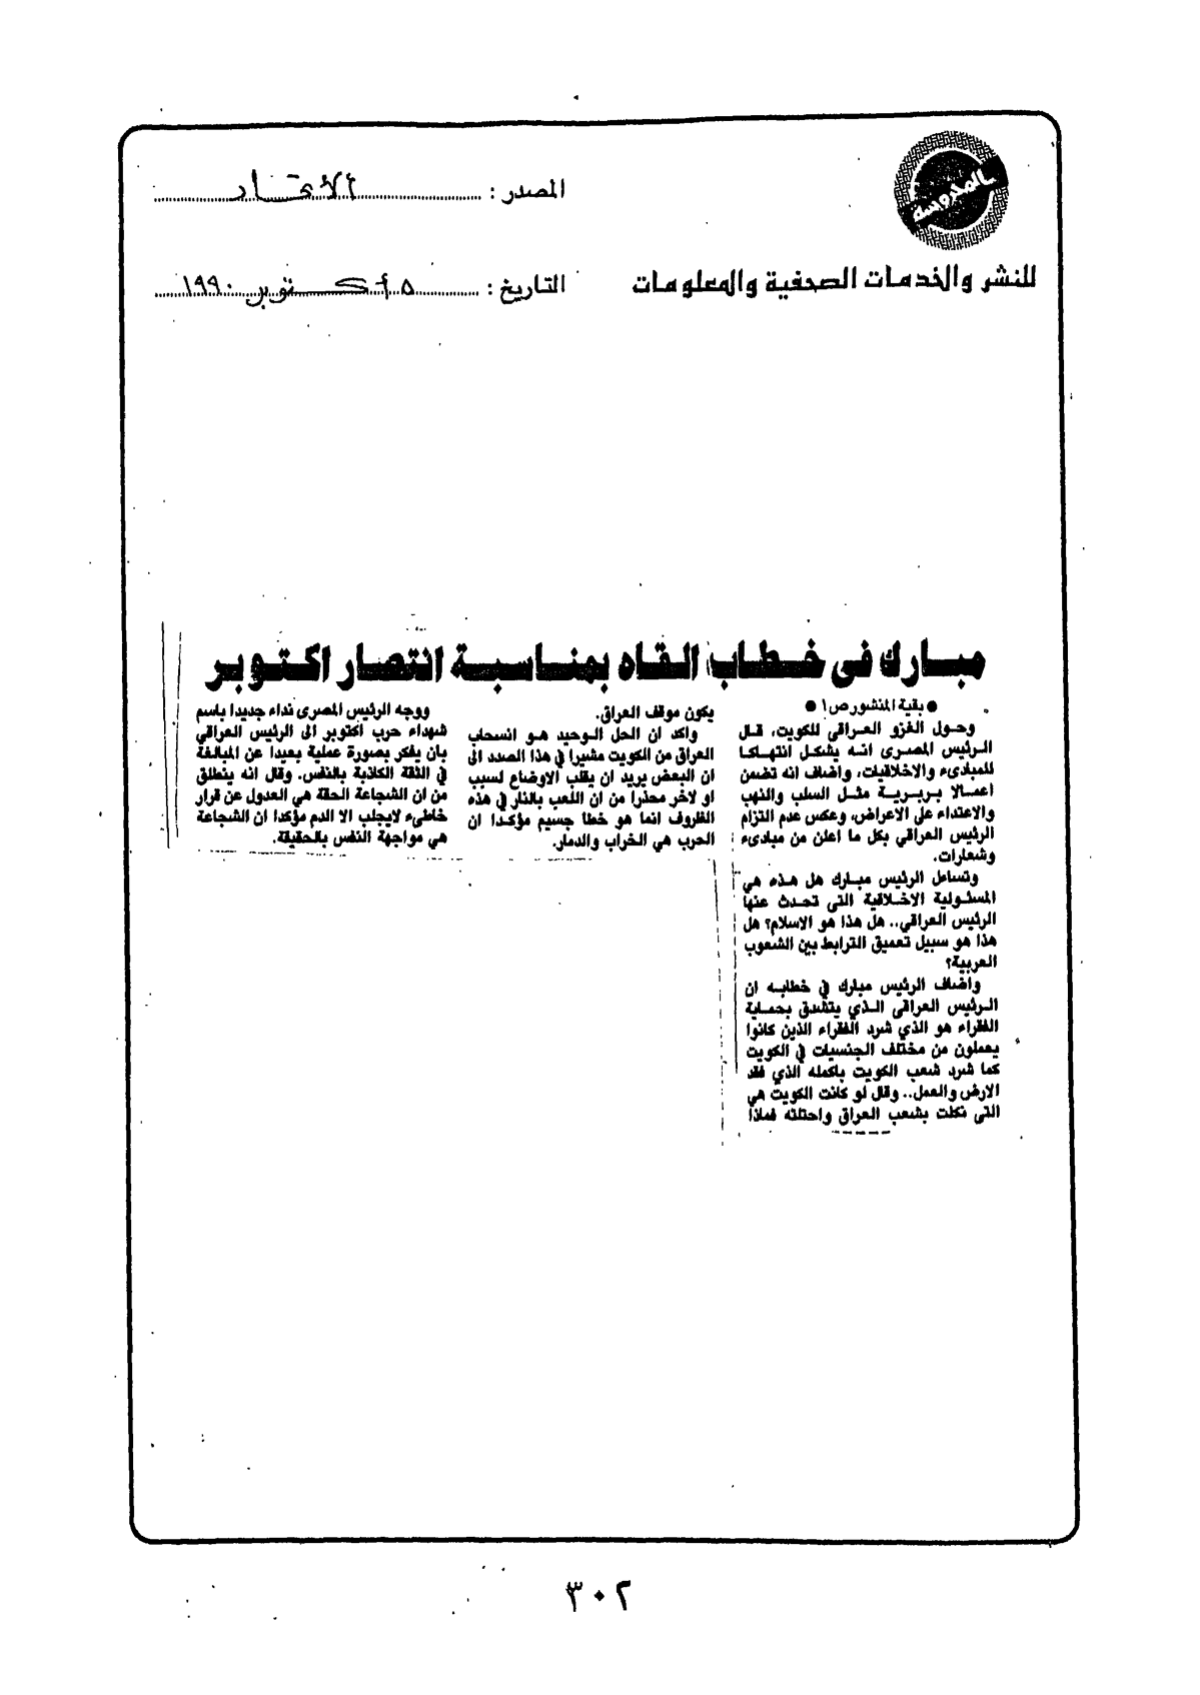 المحروسة
للنشر والخدمات الصحفية والمعلومات
المصدر : الاتحاد
التاريخ : ٥ أكتوبر ١٩٩٠
مبارك فى خطاب القاه بمناسبة انتصار اكتوبر
● بقية المنشور ص١ ●
وحول الغزو العراقى للكويت، قال
الرئيس المصرى انه يشكل انتهاكا
للمبادىء والاخلاقيات، واضاف انه تضمن
اعمالا بربرية مثل السلب والنهب
والاعتداء على الاعراض، وعكس عدم التزام
الرئيس العراقي بكل ما اعلن من مبادىء
وشعارات.
وتساءل الرئيس مبارك هل هذه هي
المسئولية الاخلاقية التى تحدث عنها
الرئيس العراقي.. هل هذا هو الاسلام؟ هل
هذا هو سبيل تعميق الترابط بين الشعوب
العربية؟
واضاف الرئيس مبارك في خطابه ان
الرئيس العراقى الذي يتشدق بحماية
الفقراء هو الذي شرد الفقراء الذين كانوا
يعملون من مختلف الجنسيات في الكويت
كما شرد شعب الكويت باكمله الذي فقد
الارض والعمل.. وقال لو كانت الكويت هي
التى نكلت بشعب العراق واحتلته فماذا
يكون موقف العراق.
واكد ان الحل الوحيد هو انسحاب
العراق من الكويت مشيرا في هذا الصدد الى
ان البعض يريد ان يقلب الاوضاع لسبب
او لاخر محذرا من ان اللعب بالنار في هذه
الظروف انما هو خطا جسيم مؤكدا ان
الحرب هي الخراب والدمار.
ووجه الرئيس المصرى نداء جديدا باسم
شهداء حرب اكتوبر الى الرئيس العراقي
بان يفكر بصورة عملية بعيدا عن المبالغة
في الثقة الكاذبة بالنفس. وقال انه ينطلق
من ان الشجاعة الحقة هي العدول عن قرار
خاطىء لايجلب الا الدم مؤكدا ان الشجاعة
هي مواجهة النفس بالحقيقة.
٣٠٢